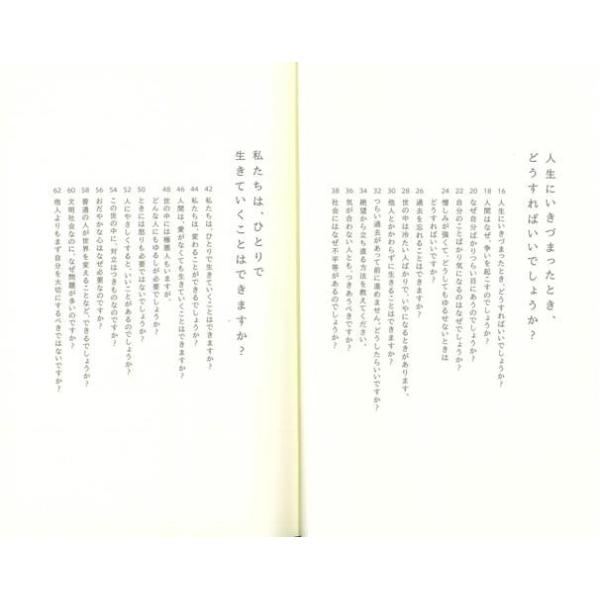 人生にいきづまったとき、
どうすればいいでしょうか?
16 人生にいきづまったとき、どうすればいいでしょうか?
18 人間はなぜ、争いを起こすのでしょうか?
20 なぜ自分ばかりつらい目にあうのでしょうか?
22 自分のことばかり気になるのはなぜでしょうか?
24 憎しみが強くて、どうしてもゆるせないときは
どうすればいいですか?
26 過去を忘れることはできますか?
28 世の中は冷たい人ばかりで、いやになるときがあります。
30 他人とかかわらずに生きることはできますか?
32 つらい過去があって前に進めません。どうしたらいいですか?
34 絶望から立ち直る方法を教えてください。
36 気が合わない人とも、つきあうべきですか?
38 社会にはなぜ不平等があるのでしょうか?
私たちは、ひとりで
生きていくことはできますか?
42 私たちは、ひとりで生きていくことはできますか?
44 私たちは、変わることができるでしょうか?
46 人間は、愛がなくても生きていくことはできますか?
48 世の中には極悪人もいますが、
どんな人にもゆるしが必要でしょうか?
50 ときには怒りも必要ではないでしょうか?
52 人にやさしくすると、いいことがあるのでしょうか?
54 この世の中に、対立はつきものなのですか?
56 おだやかな心はなぜ必要なのですか?
58 普通の人が世界を変えることなど、できるでしょうか?
60 文明社会なのに、なぜ問題が多いのですか?
62 他人よりもまず自分を大切にするべきではないですか?